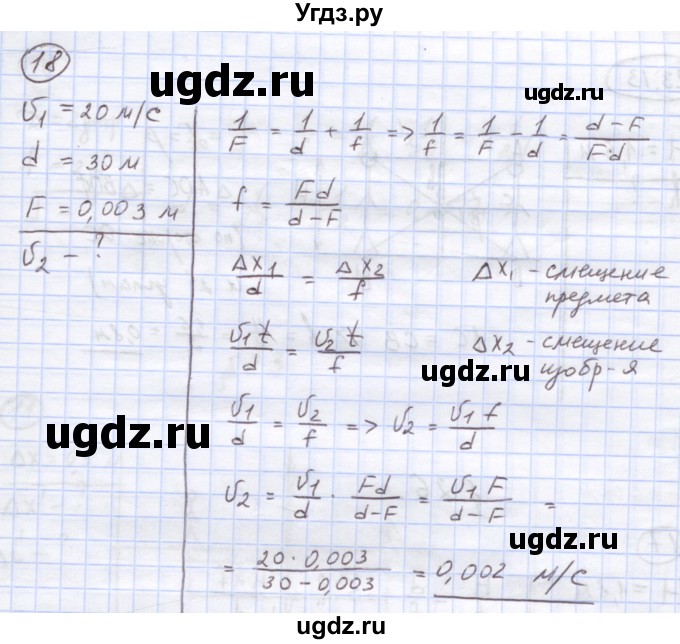 Угдз.ру
18
ugdz.ru
ugdz.ru
υ₁ = 20 м/с
d = 30 м
F = 0,003 м
υ₂ - ?
1/F = 1/d + 1/f => 1/f = 1/F - 1/d = d-F/F·d
f = Fd/d-F
Δx₁/d = Δx₂/f
Δx₁ - смещение
предмета
υ₁t/d = υ₂t/f
Δx₂ - смещение
изобр-я
ugdz.ru
ugdz.ru
υ₁/d = υ₂/f => υ₂ = υ₁f/d
υ₂ = υ₁/d · Fd/d-F = υ₁F/d-F =
= 20·0,003/30-0,003 = 0,002 м/с